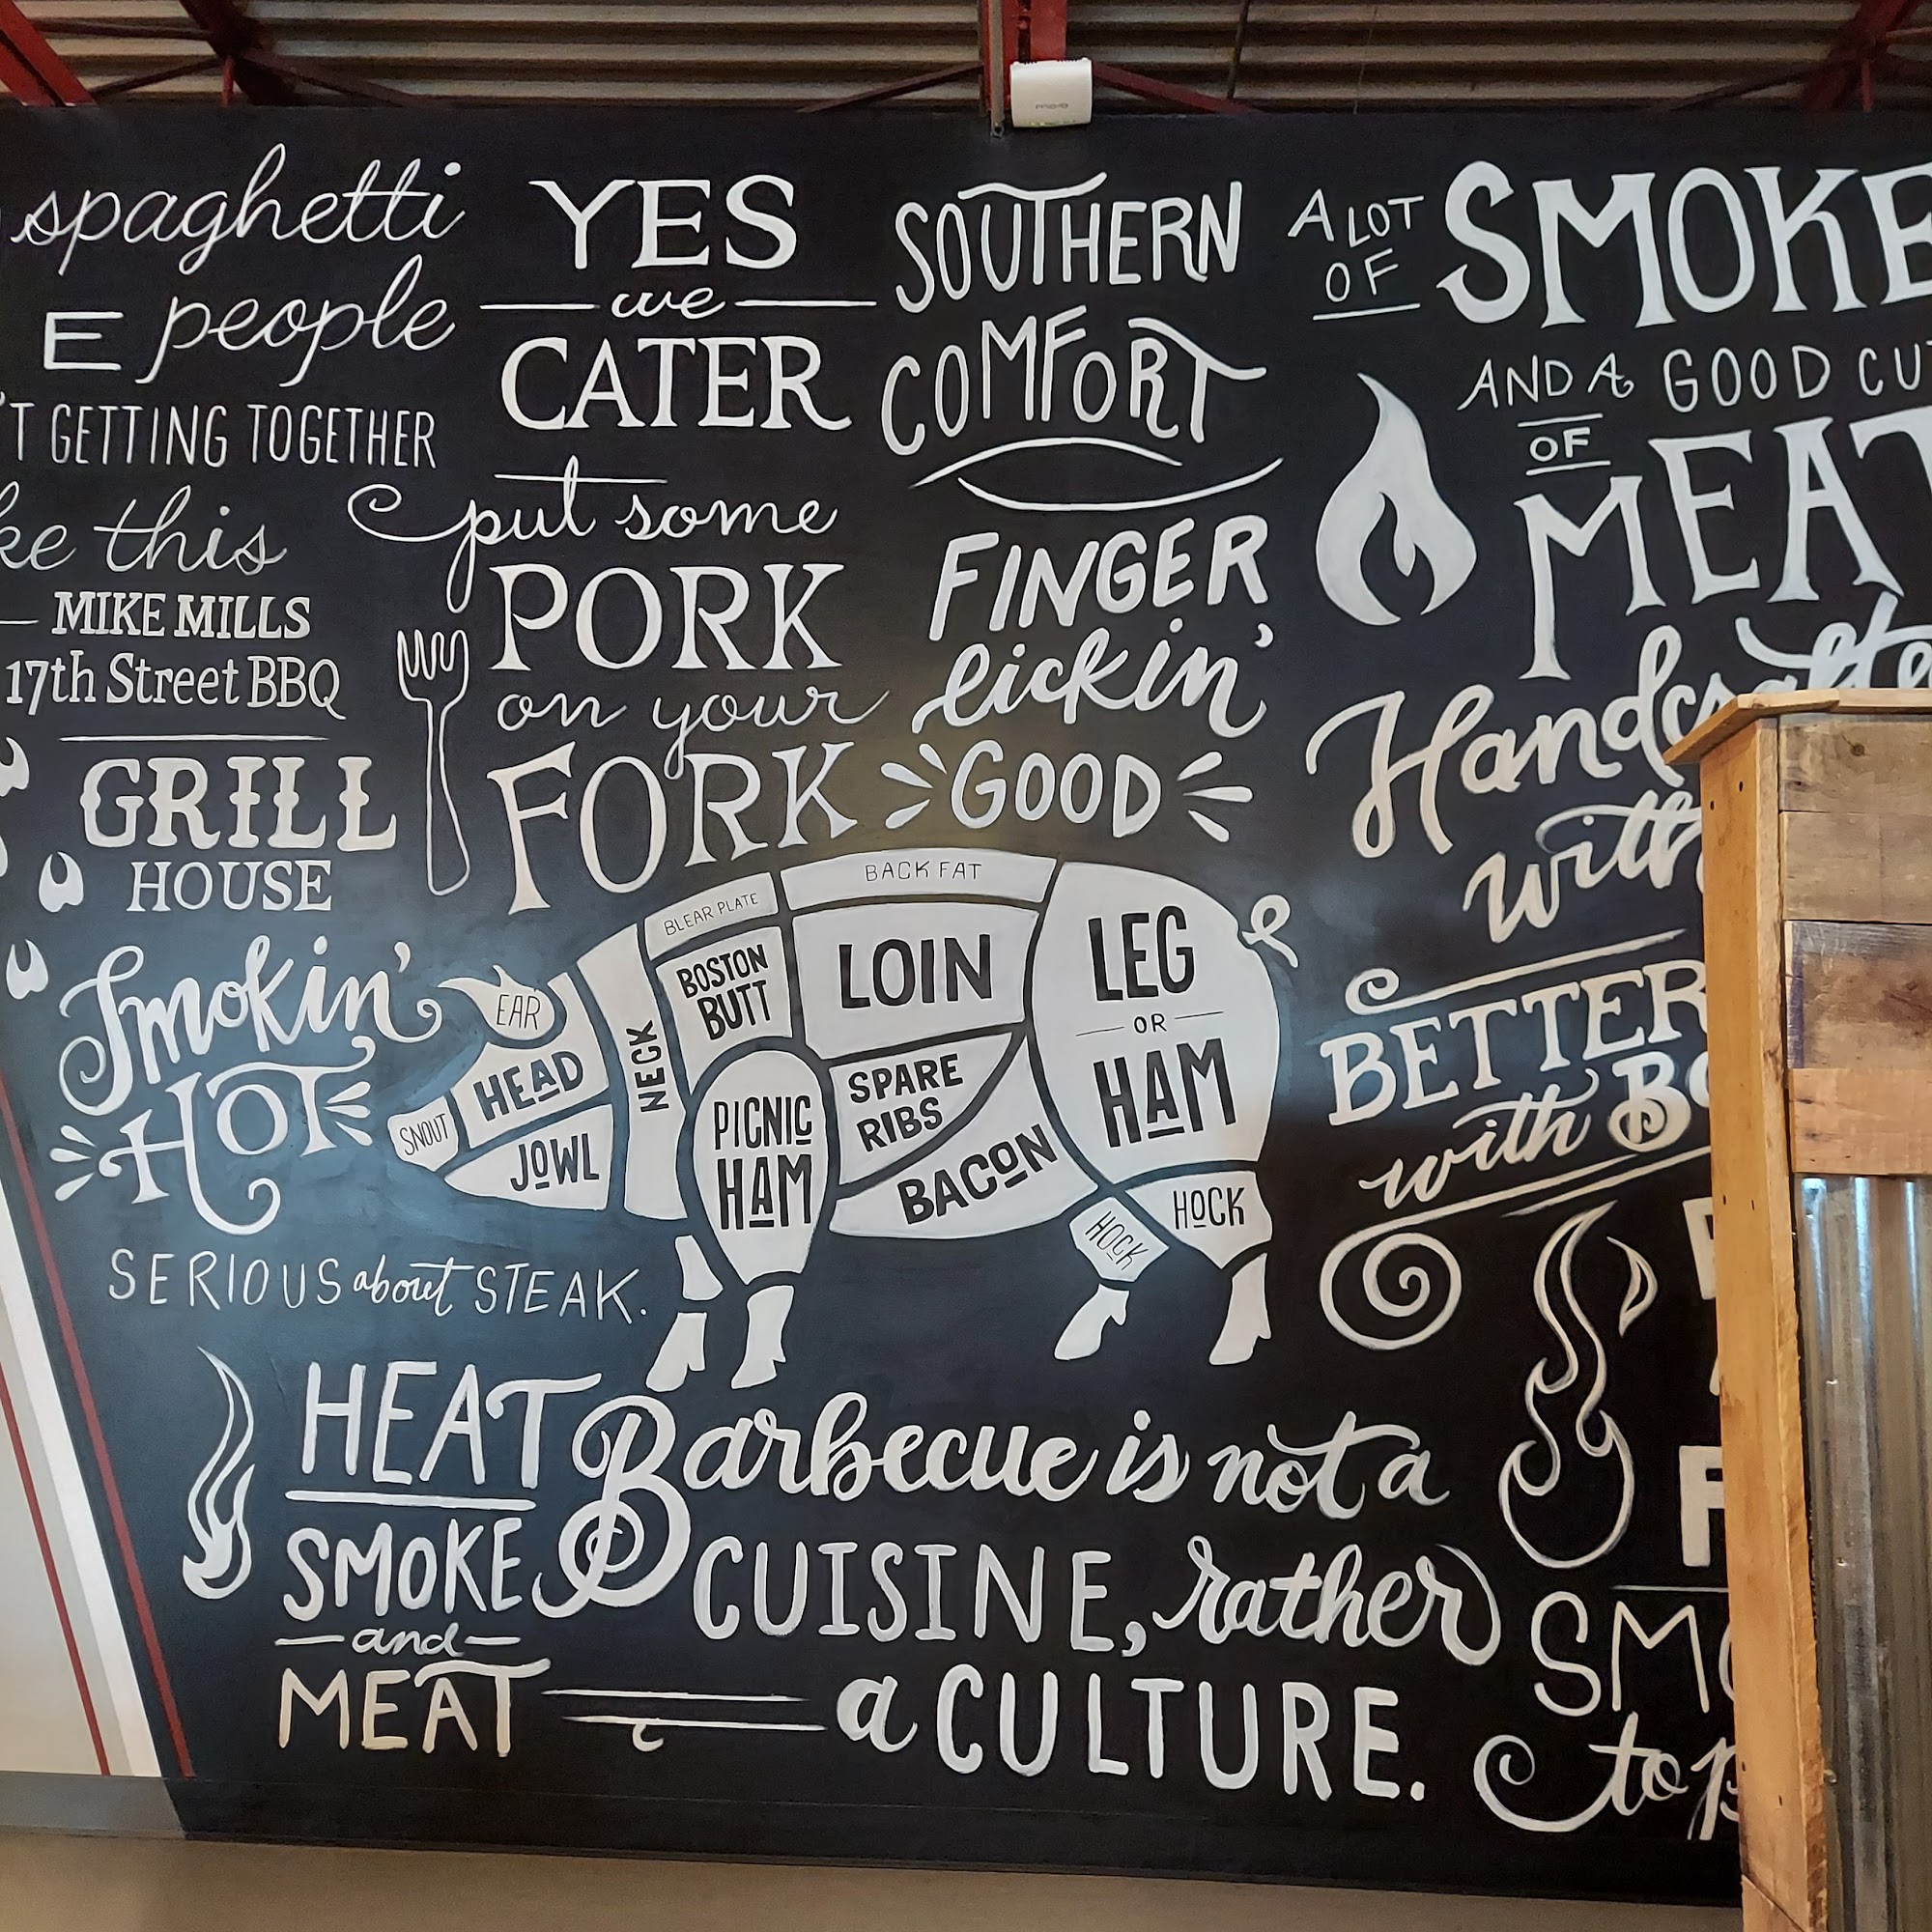 spaghetti
E people
T GETTING TOGETHER
ke this
MIKE MILLS
17th Street BBQ
GRILL
HOUSE
Smokin'
HOT
SERIOUS about STEAK.
HEAT
SMOKE
and
MEAT
YES
we
CATER
put some
PORK
on your
FORK
SOUTHERN
COMFORT
FINGER
lickin'
GOOD
BACK FAT
BLEAR PLATE
BOSTON
BUTT
LOIN
LEG
OR
HAM
EAR
HEAD
NECK
SNOUT
JOWL
PICNIC
HAM
SPARE
RIBS
BACON
HOCK
HOCK
Barbecue is not a
CUISINE, rather
a CULTURE.
A LOT
OF
SMOKE
AND A GOOD CU
OF
MEAT
Handcrafte
with
BETTER
with Bo
SMO
to p